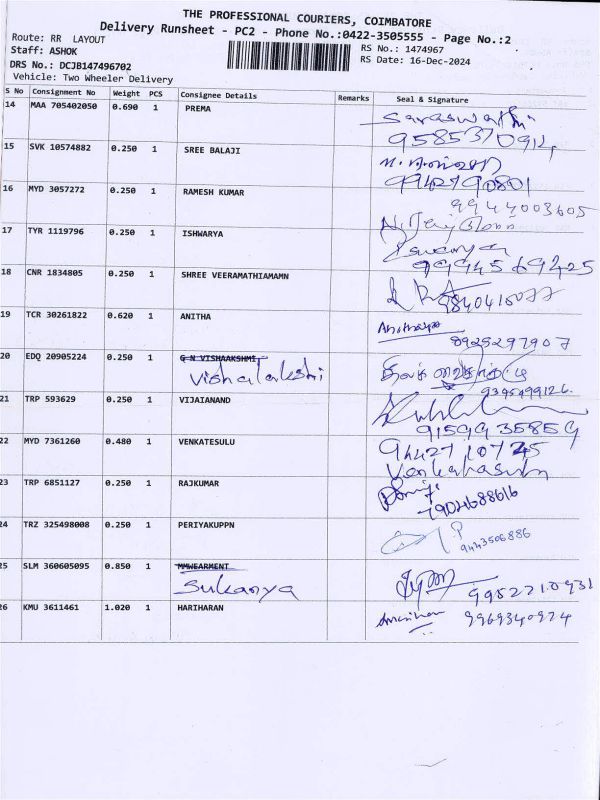 THE PROFESSIONAL COURIERS, COIMBATORE
Delivery Runsheet - PC2 - Phone No.:0422-3505555 - Page No.:2
Route: RR LAYOUT
RS No.: 1474967
Staff: ASHOK
RS Date: 16-Dec-2024
DRS No.: DCJB147496702
Vehicle: Two Wheeler Delivery
S No Consignment No Weight PCS Consignee Details Remarks Seal & Signature
14 MAA 705402050 0.690 1 PREMA Saraswathi
15 SVK 10574882 0.250 1 SREE BALAJI
9942790801
16 MYD 3057272 0.250 1 RAMESH KUMAR 9944003605
17 TYR 1119796 0.250 1 ISHWARYA Iswarya
9994569425
18 CNR 1834805 0.250 1 SHREE VEERAMATHIAMAMN
19 TCR 30261822 0.620 1 ANITHA
8925297907
20 EDQ 20905224 0.250 1 G N VISHAAKSHMI
Vishalakshi
9395499126
21 TRP 593629 0.250 1 VIJAIANAND
9159935859
22 MYD 7361260 0.480 1 VENKATESULU 9442710745
23 TRP 6851127 0.250 1 RAJKUMAR
7904688616
24 TRZ 325498008 0.250 1 PERIYAKUPPN
9443506886
25 SLM 360605095 0.850 1 MMWEARMENT
Sukanya 9952710931
26 KMU 3611461 1.020 1 HARIHARAN 9969340974